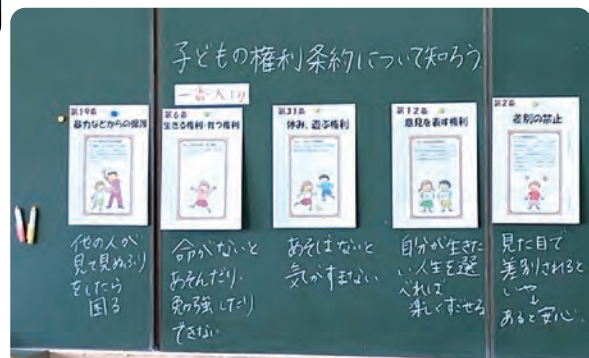 子どもの権利条約について知ろう
一番大切
第19条
暴力などからの保護
第6条
生きる権利・育つ権利
第31条
休み、遊ぶ権利
第12条
意見を表す権利
第2条
差別の禁止
他の人が
見て見ぬふり
をしたら
困る
命がないと
あそんだり、
勉強したり
できない
あそばないと
気がすまない
自分が生きた
い人生を選
べれば
楽しくすごせる
見た目で
差別されると
いや
↓
あると安心。